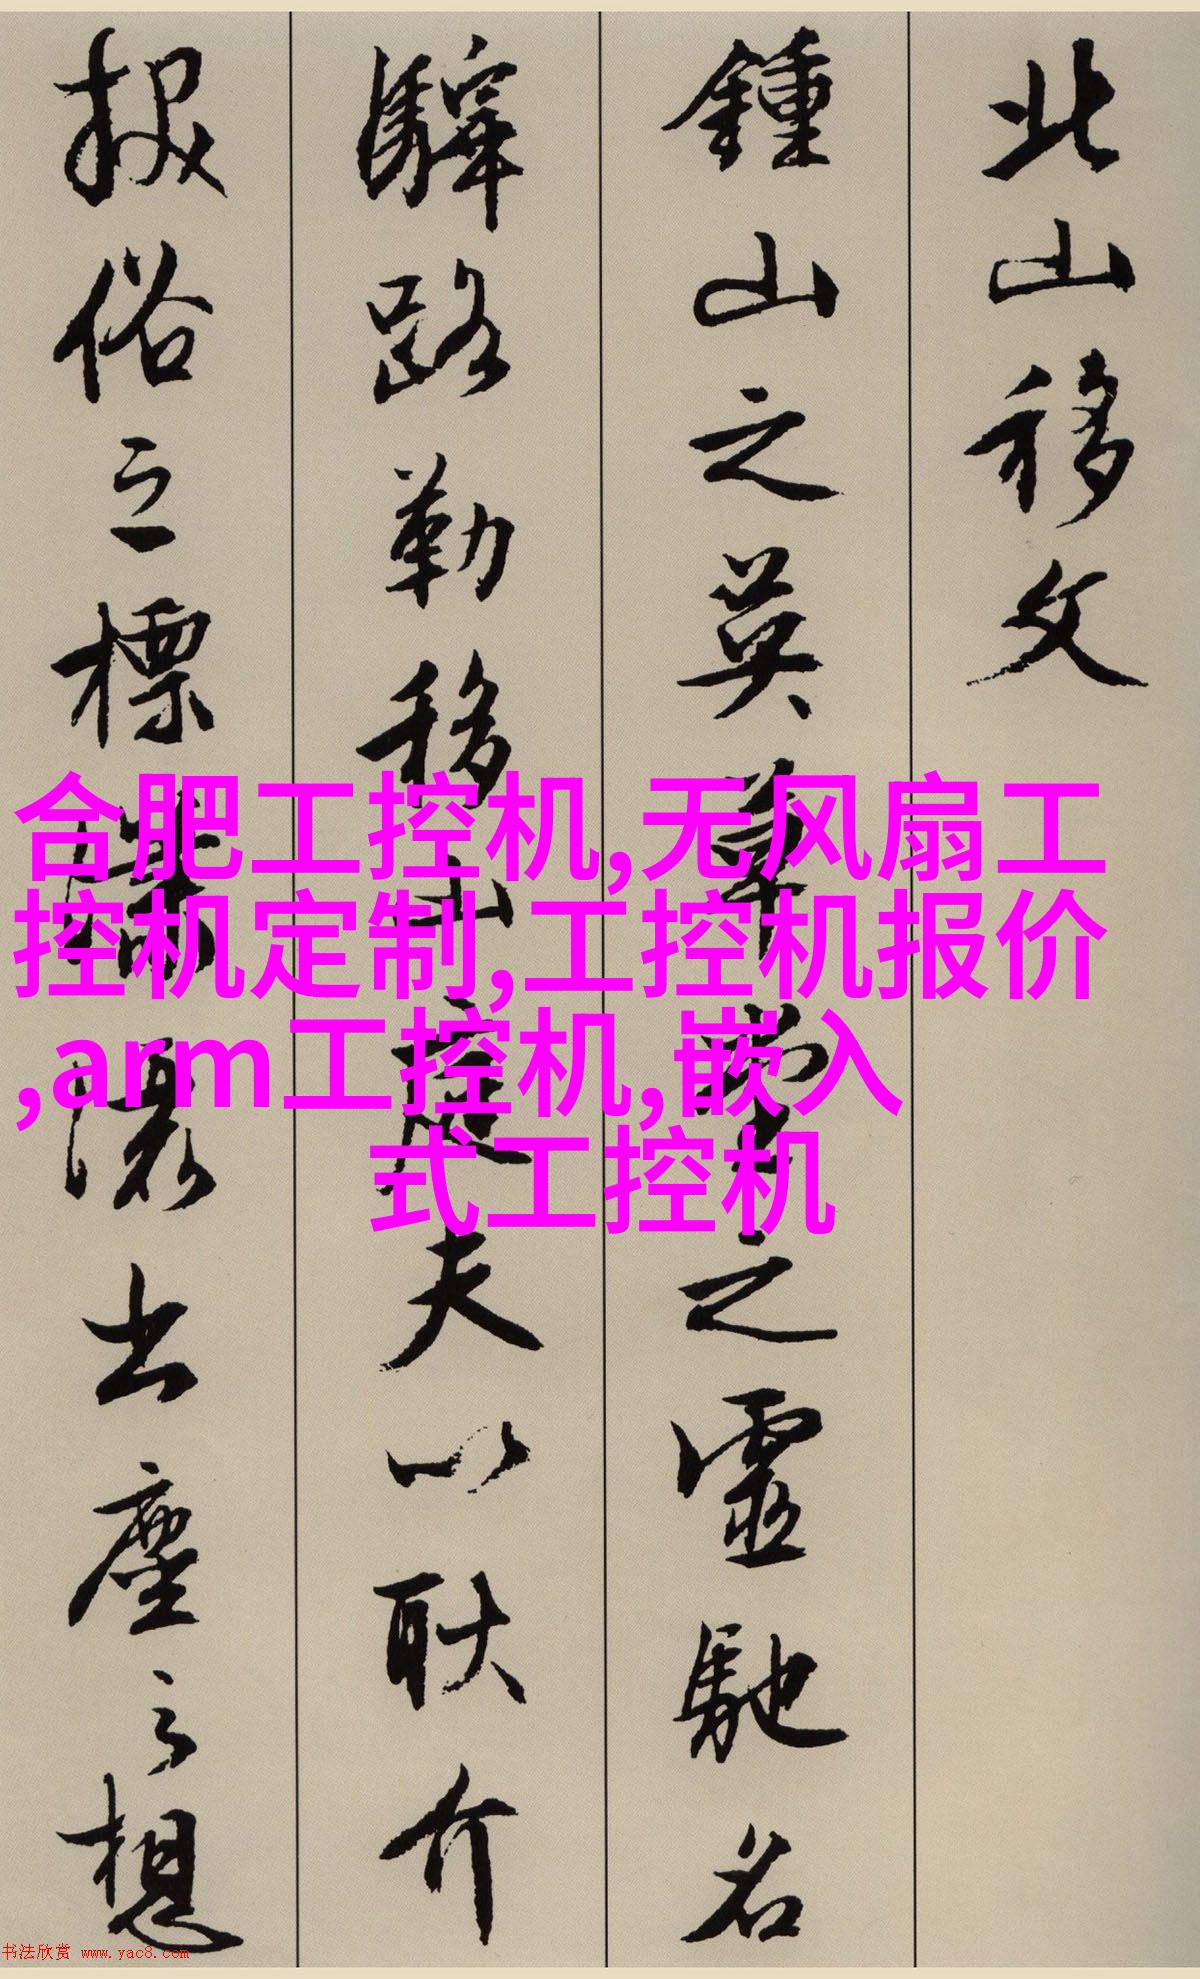 北山移文
鍾山之英草堂之靈馳名
驛路勒移山庭夫以耿介
拔俗之標瀟灑出塵之想
合肥工控机,无风扇工
控机定制,工控机报价
,arm工控机,嵌入
式工控机
书法欣赏 www.yac8.com